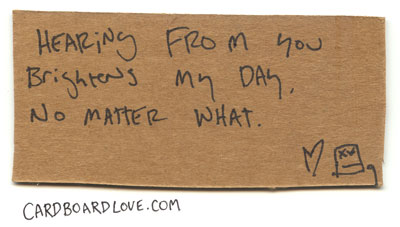 HEARING FROM YOU
BRIGHTENS MY DAY,
NO MATTER WHAT.
CARDBOARDLOVE.COM